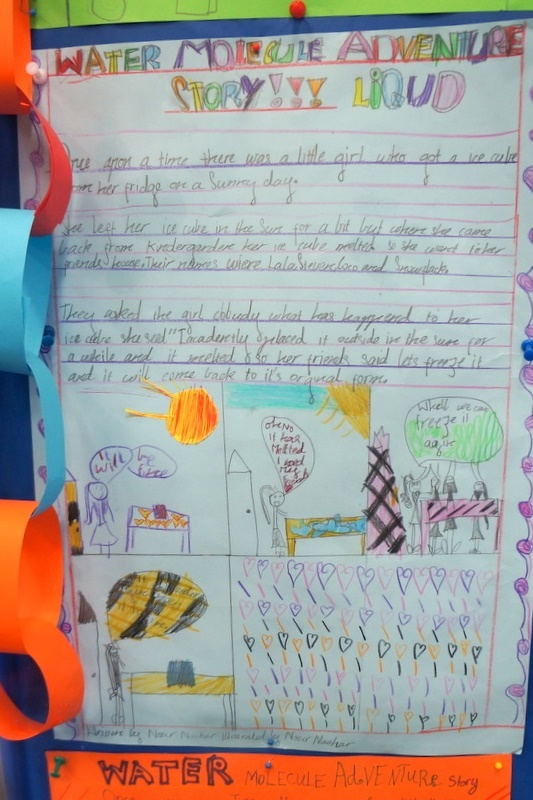 WATER MOLECULE ADVENTURE
STORY!!! LIQUD
Once upon a time there was a little girl who got a ice cube
from her fridge on a Sunny day.
She left her ice cube in the sun for a bit but when she came
back from Kindergarden her ice cube melted so she went to her
friends house. Their names where Lala, Steven, Coco and Snowflack.
They asked the girl what has happened to her
ice cube she said "I acadently placed it outside in the sune for
a while and it melted so her friends said lets freeze it
and it will come back to it's orginal form.
It will be fine
oh No
it has
Melted
I need
My
Whell we can
freeze it
again
Written by Noor Illustrated by Noor
WATER MOLECULE ADVENTURE Story